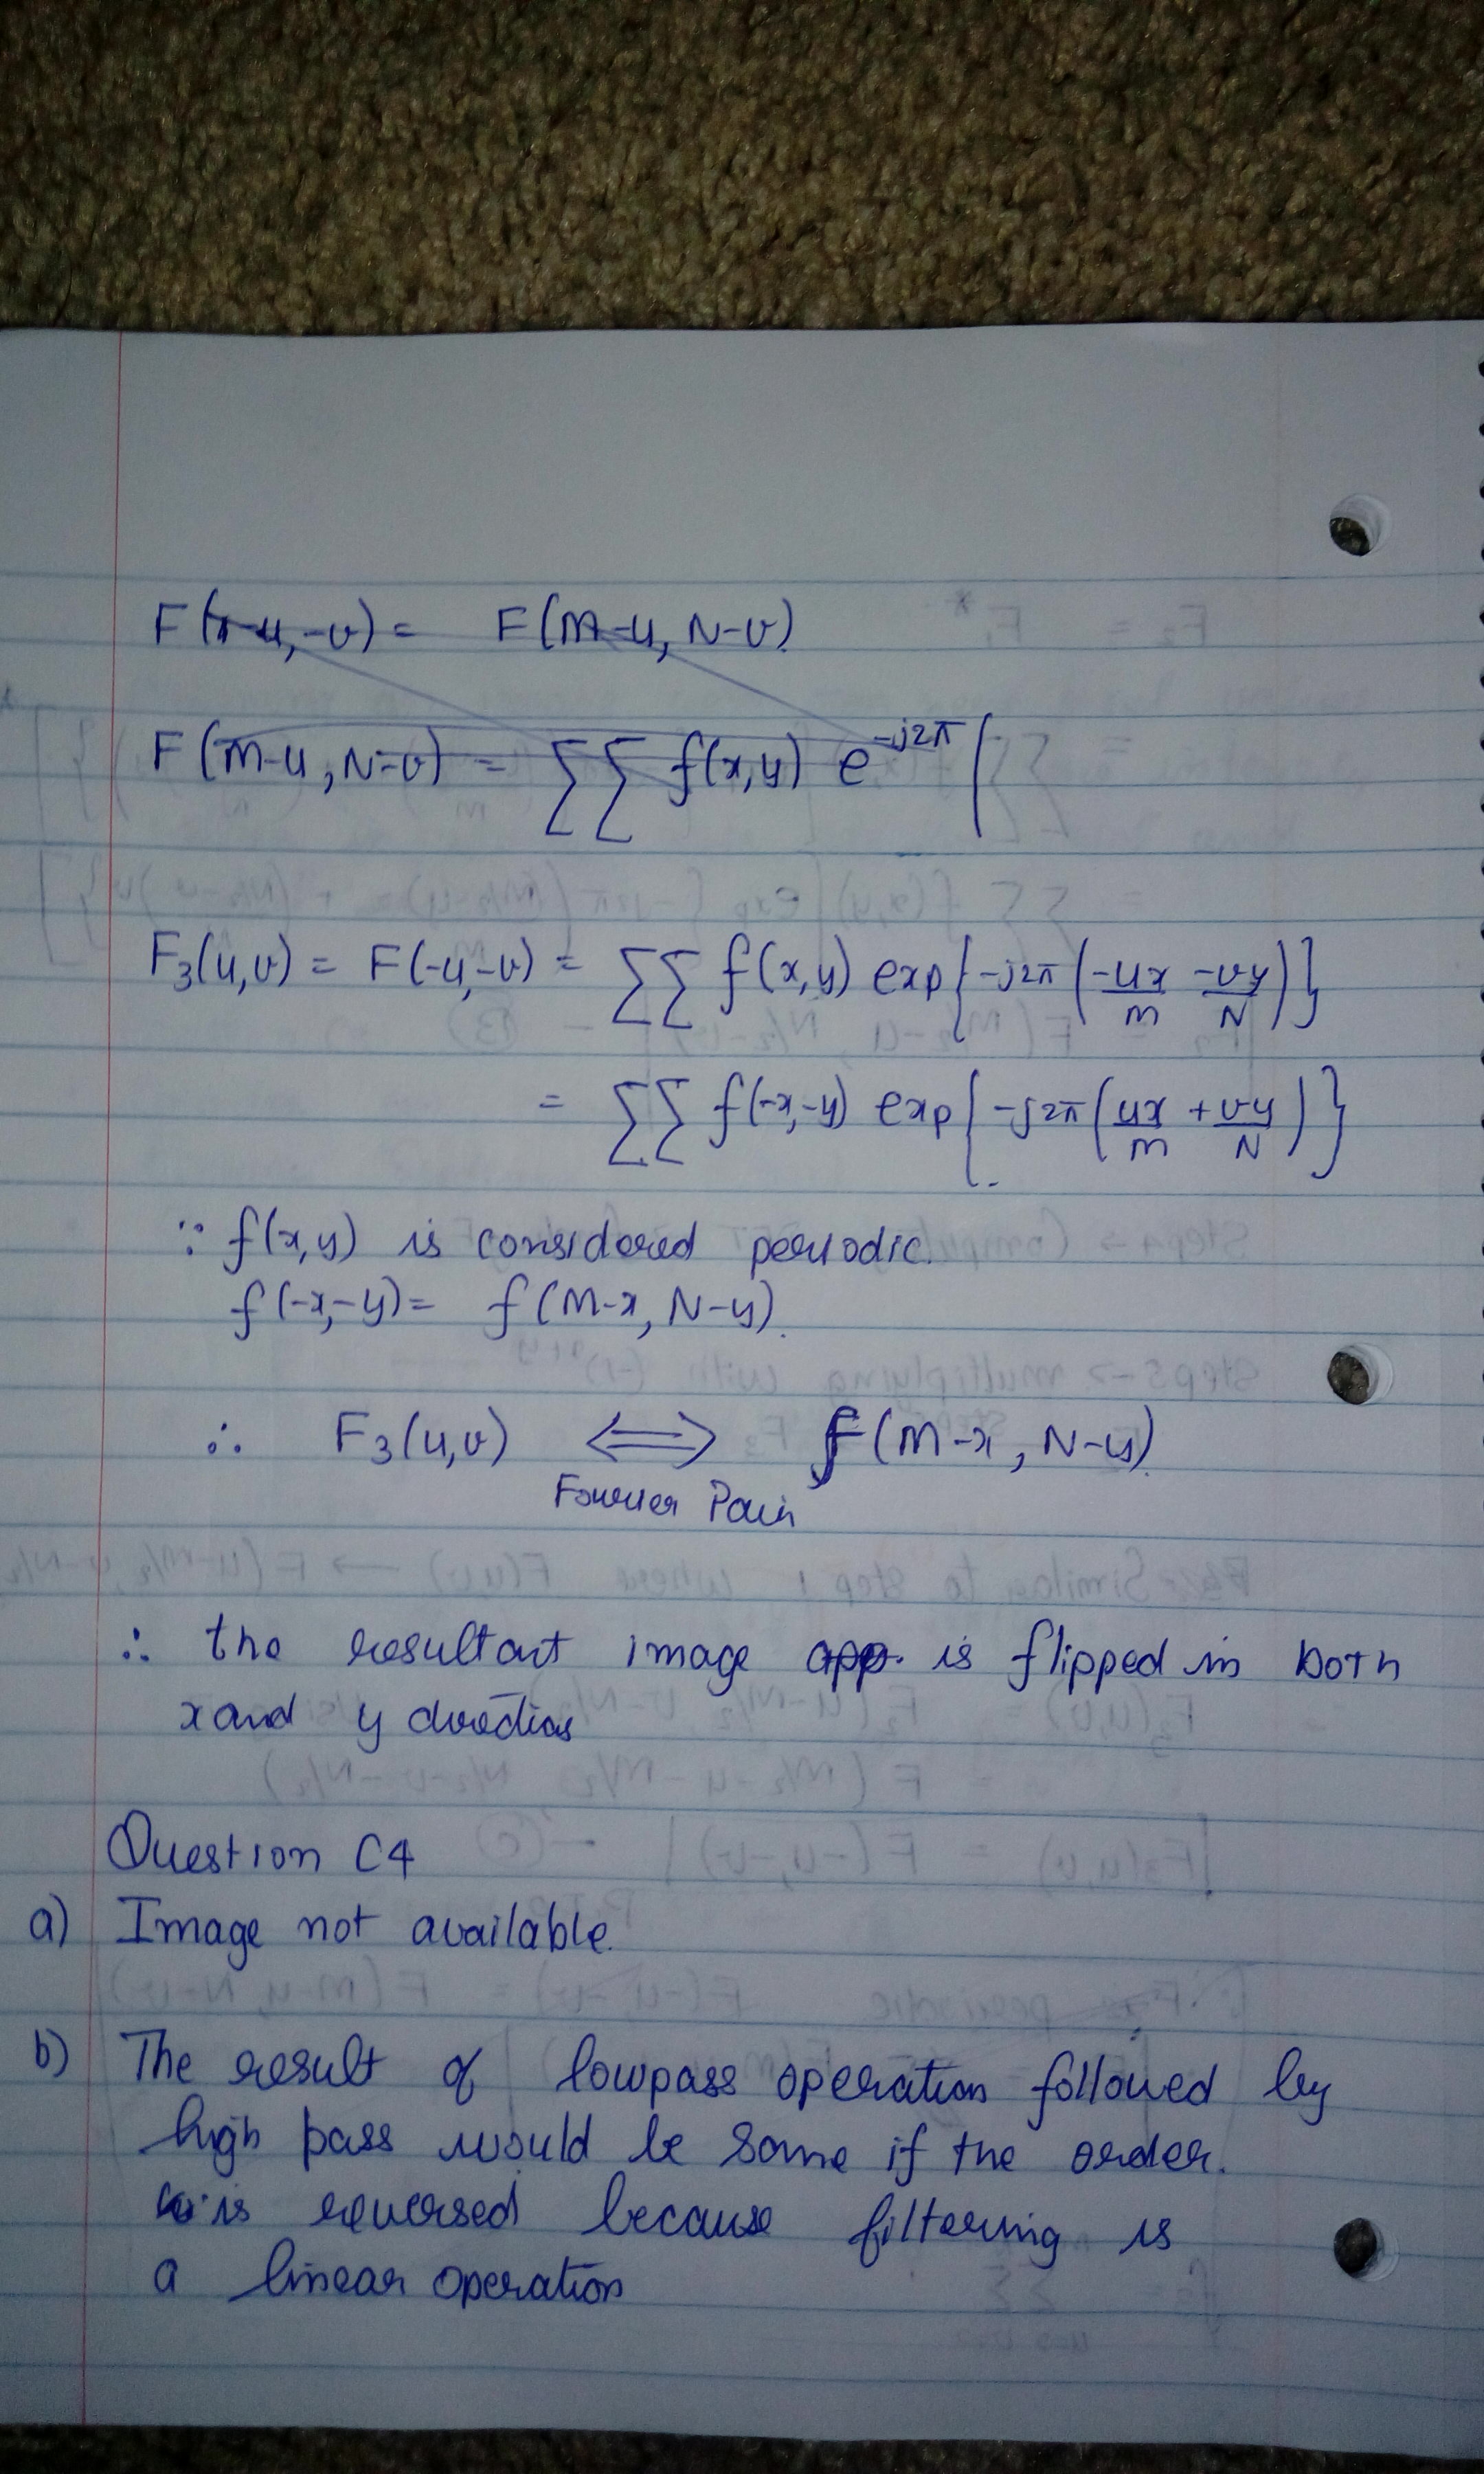 F(x-u, -v) = F(M-u, N-v)
F(M-u, N-v) = ∑∑ f(x,y) e^{-j2π} (
F₃(u,v) = F(-u,-v) = ∑∑ f(x,y) exp{-j2π(-ux/M -vy/N)}
= ∑∑ f(-x,-y) exp{-j2π(ux/M + vy/N)}
∵ f(x,y) is considered periodic.
f(-x,-y) = f(M-x, N-y).
∴ F₃(u,v) ⟺ f(M-x, N-y).
Fourier Pair
∴ the resultant image app. is flipped in both
x and y directions
Question C4
a) Image not available.
b) The result of lowpass operation followed by
high pass would be same if the order.
is reversed because filtering is
a linear operation